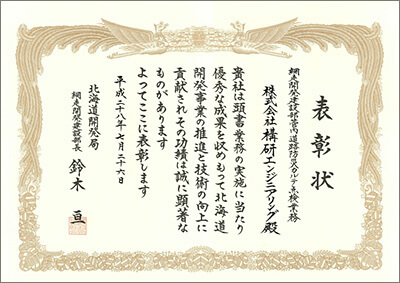 表彰状
網走開発建設部管内道路防災カルテ点検業務
株式会社構研エンジニアリング殿
貴社は頭書業務の実施に当たり
優秀な成果を収めもって北海道
開発事業の推進と技術の向上に
貢献されその功績は誠に顕著な
ものがあります
よってここに表彰します
平成二十八年七月二十六日
北海道開発局
網走開発建設部長 鈴木 亘